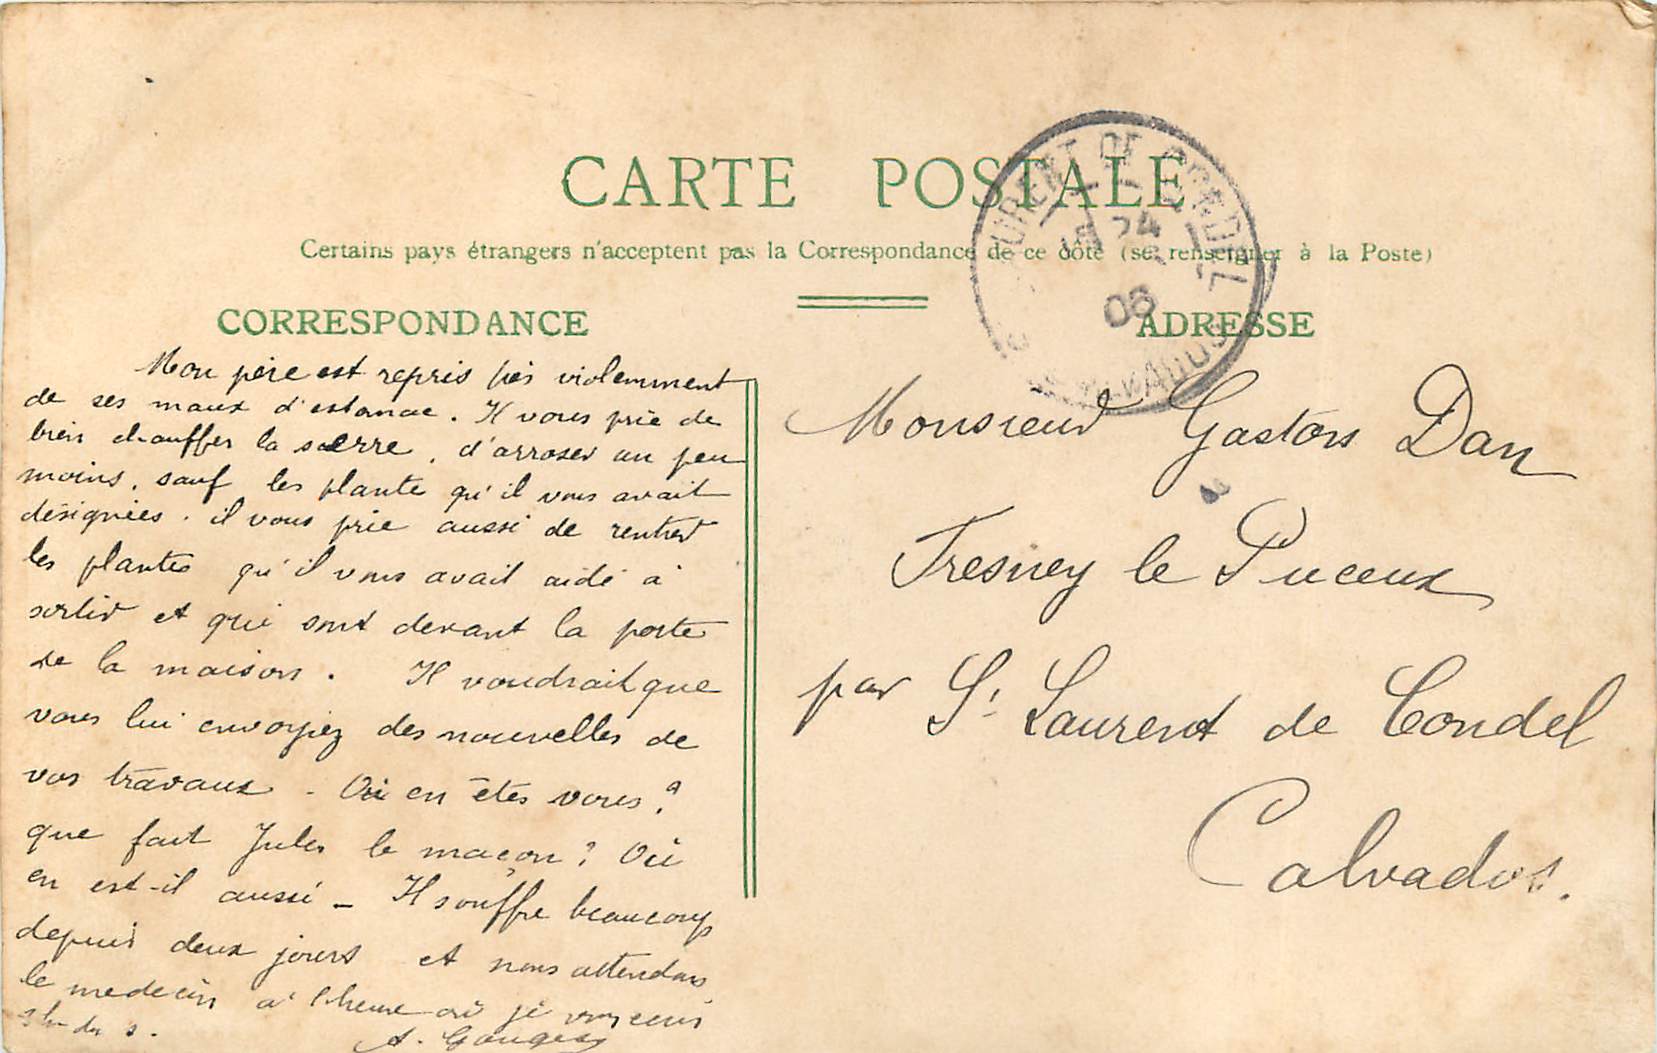 CARTE POSTALE
Certains pays étrangers n'acceptent pas la Correspondance de ce côté (se renseigner à la Poste)
CORRESPONDANCE
Mon père est repris très violemment
de ses maux d'estomac. Il vous prie de
bien chauffer la serre, d'arroser un peu
moins, sauf les plante qu'il vous avait
désignées. il vous prie aussi de rentrer
les plantes qu'il vous avait aidé à
sortir et qui sont devant la porte
de la maison. Il voudrait que
vous lui envoyiez des nouvelles de
vos travaux - Où en êtes vous?
que fait Jules le maçon? Où
en est-il aussi - Il souffre beaucoup
depuis deux jours et nous attendons
le medecin à l'heure où je vous écris
A.
ADRESSE
Monsieur Gaston Dan
Fresney le Puceux
par St Laurent de Condel
Calvados.
LAURENT DE CONDEL
24
06
CALVADOS